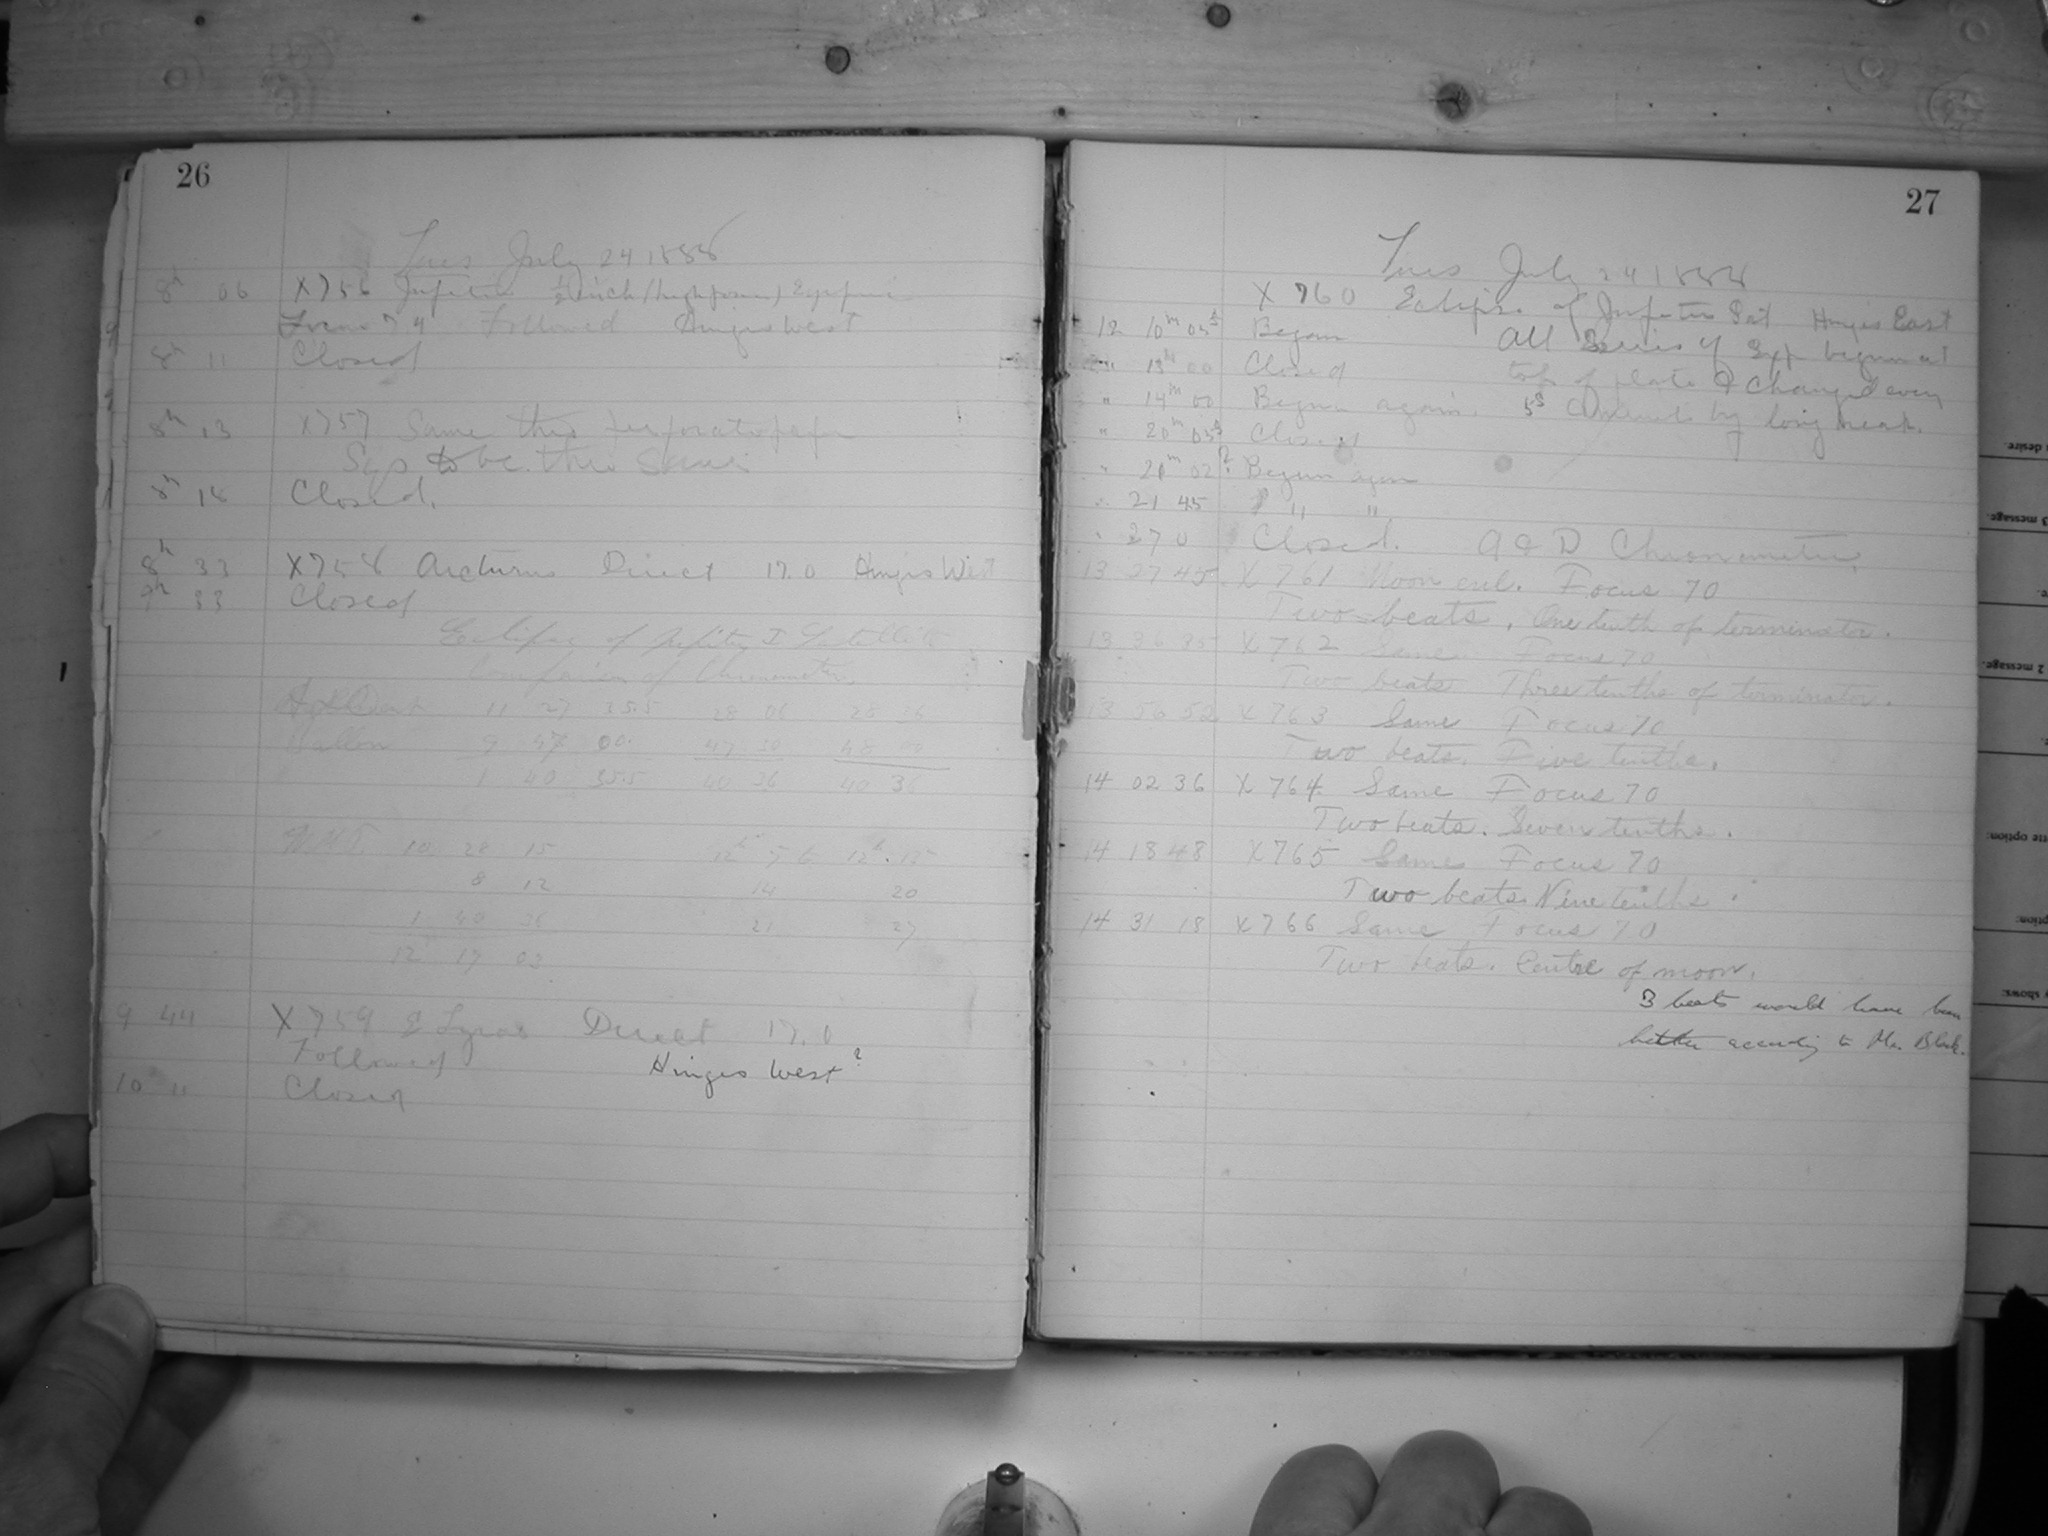 26
Tues July 24 1888
8h 06 X756 Jupiter 1/2 inch (high power) Eyepiece
Focus 74 Followed Hinges West
8h 11 Closed
8h 13 X757 Same thro
to be the same
8h 18 Closed.
8h 33 X758 Arcturus Direct 17.0 Hinges West
9h 33 Closed
Eclipse of Jupiter I Satellite
Comparison of Chronometers
11 27 35.5 28 06 28 36
9 47 00. 47 30 48 00
1 40 35.5 40 36 40 36
10 28 15 12h 5 6 12h.13
8 12 14 20
1 40 36 21 27
12 17 03
9 44 X759 Lyrae Direct 17.0
Followed Hinges West?
10 11 Closed
27
Tues July 24 1888
X 760 Eclipse of Jupiter Sat Hinges East
12 10m 05s Began All Series of Exp begun at
" 13m 00 Closed top of plate & Changed every
" 14m 00 Begun again. 5s by long beat.
" 20m 03s Closed
" 21m 02? Begun again
" 21 45 " "
" 27 0 Closed. A & D Chronometer.
13 27 45 X 761 Moon ecl. Focus 70
Two beats. One tenth of terminator.
13 36 35 X 762 Same Focus 70
Two beats Three tenths of terminator.
13 56 52 X 763 Same Focus 70
Two beats. Five tenths.
14 02 36 X 764 Same Focus 70
Two beats. Seven tenths.
14 18 48 X765 Same Focus 70
Two beats. Nine tenths.
14 31 18 X766 Same Focus 70
Two beats. Centre of moon.
3 beats would have been
better according to Mr. Black.
desire.
3 message.
2 message.
option:
shows: